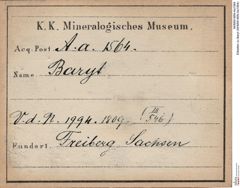 K. K. Mineralogisches Museum.
Acq. Post A. a. 1564.
Name Baryt
V. d. N. 1994. 1809. (IX/546)
Fundort Freiberg Sachsen